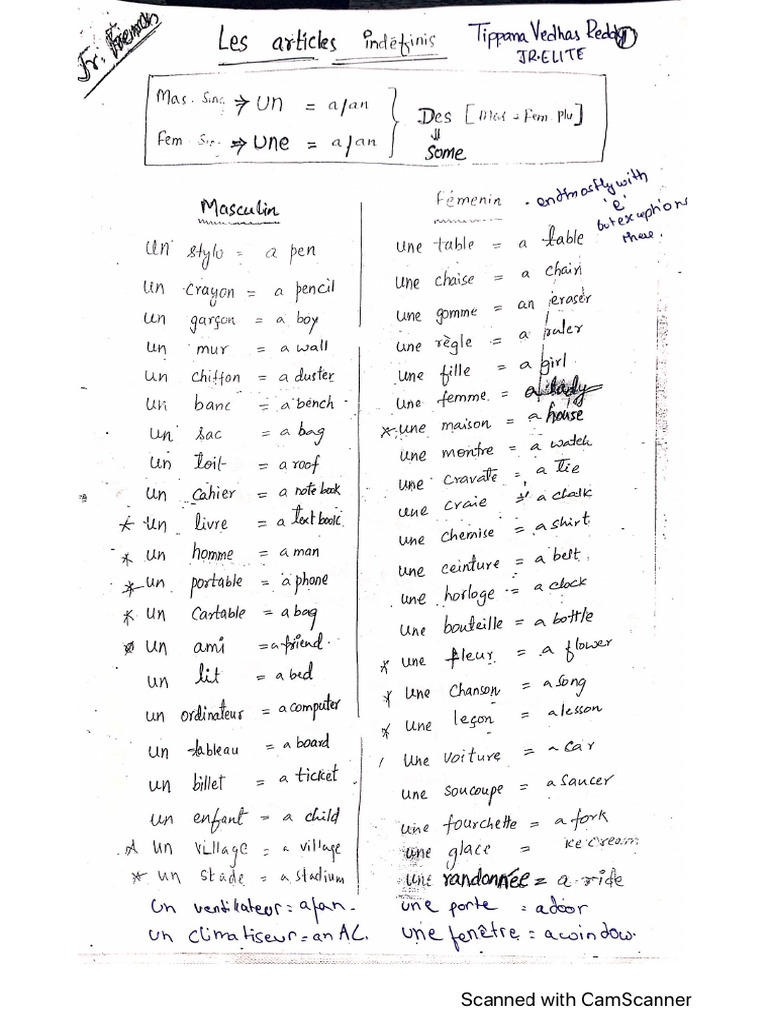 Jr. French
Les articles indéfinis
Tippana Vedhas Reddy ①
JR.ELITE
Mas. Sing. ⇒ un = a/an
Fem Sin. ⇒ une = a/an
Des [Mas + Fem Plu]
⇓
Some
Masculin
un stylo = a pen
un crayon = a pencil
un garçon = a boy
un mur = a wall
un chiffon = a duster
un banc = a bench
un sac = a bag
un toit = a roof
un cahier = a note book
* un livre = a text book
* un homme = a man
* un portable = a phone
* un cartable = a bag
* un ami = a friend.
un lit = a bed
un ordinateur = a computer
un tableau = a board
un billet = a ticket
un enfant = a child
* un village = a village
* un stade = a stadium
un ventilateur = a fan.
un climatiseur = an AC.
Fémenin
. end mostly with
'e'
but exceptions
there.
une table = a table
une chaise = a chair
une gomme = an eraser
une règle = a ruler
une fille = a girl
une femme = a lady
* une maison = a house
une montre = a watch
une cravate = a tie
une craie = a chalk
une chemise = a shirt
une ceinture = a belt
une horloge = a clock
une bouteille = a bottle
* une fleur = a flower
* une chanson = a song
* une leçon = a lesson
une voiture = a car
une soucoupe = a saucer
une fourchette = a fork
une glace = ice cream
une randonnée = a ride
une porte = a door
une fenêtre = a window.
Scanned with CamScanner